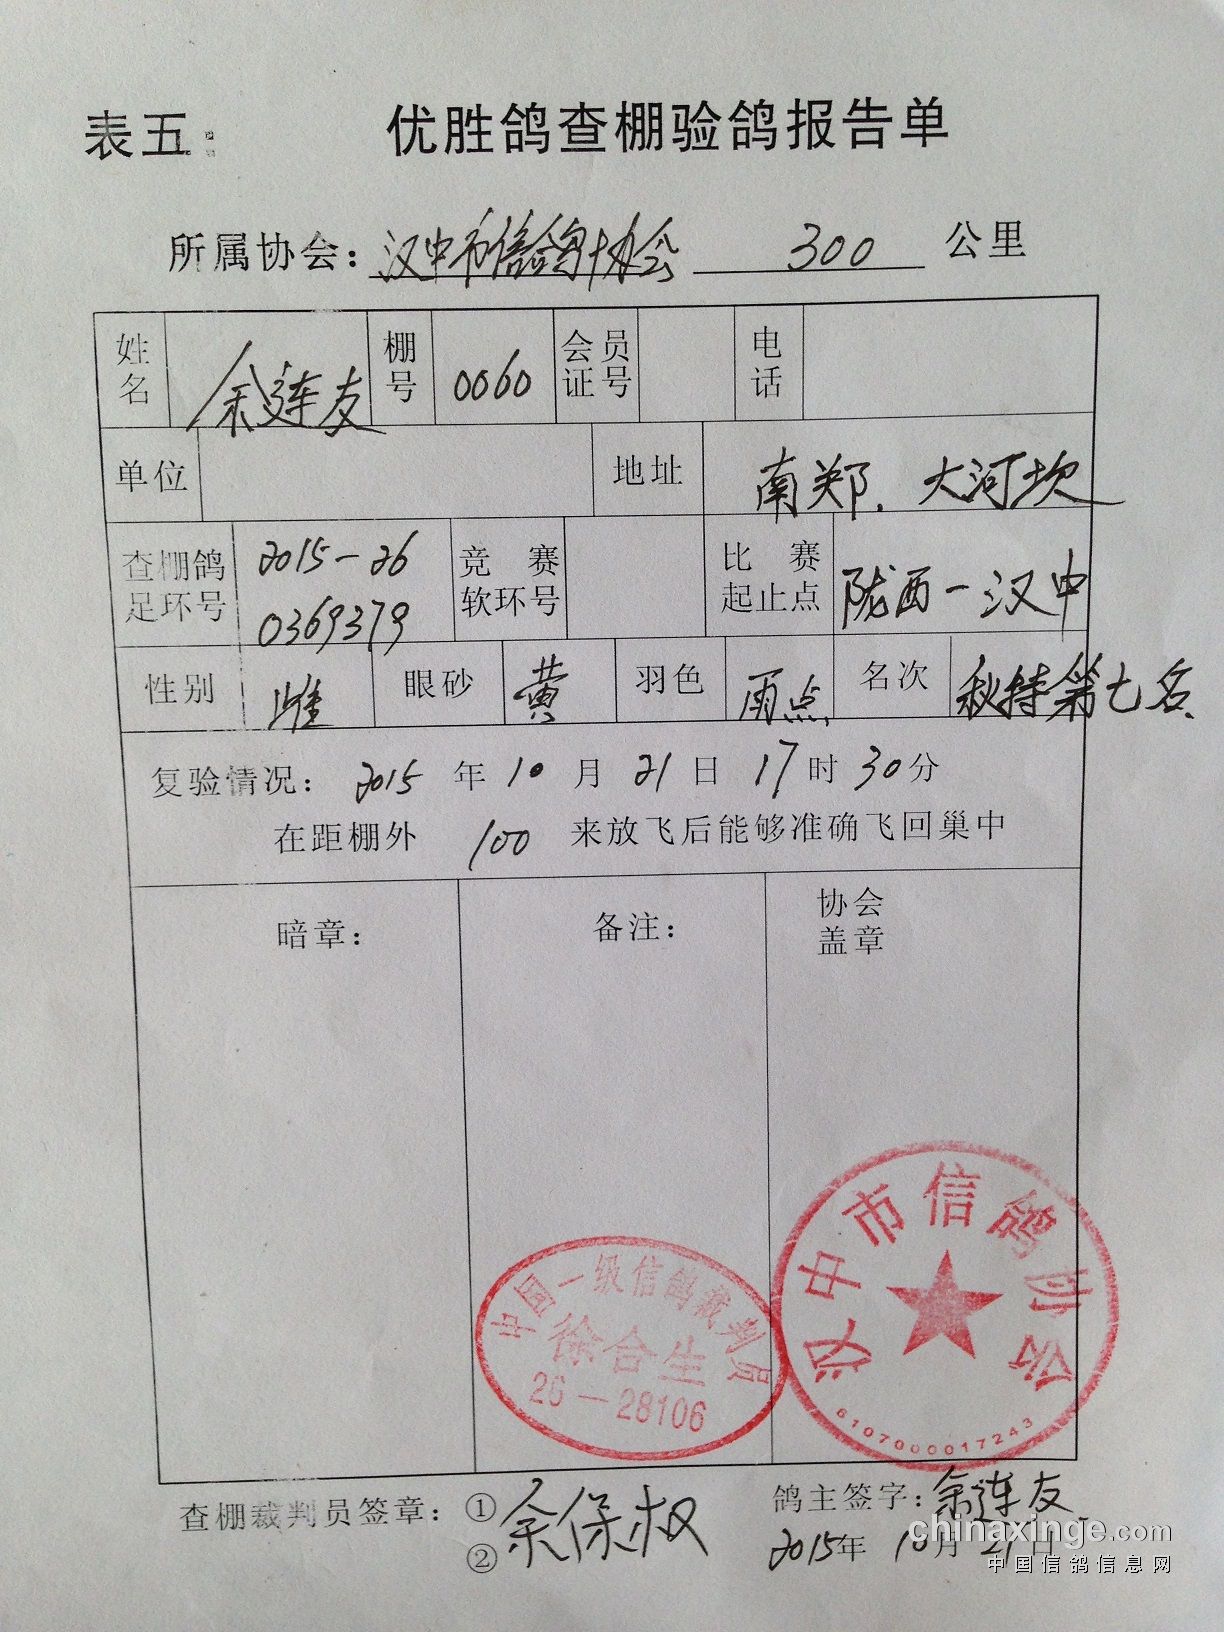 表五： 优胜鸽查棚验鸽报告单
所属协会：汉中市信鸽协会 300 公里
姓名 余连友 棚号 0060 会员证号 电话
单位 地址 南郑、大河坎
查棚鸽足环号 2015-26 0369379 竞赛软环号 比赛起止点 陇西-汉中
性别 雌 眼砂 黄 羽色 雨点 名次 秋特第七名
复验情况：2015年10月21日17时30分
在距棚外 100 来放飞后能够准确飞回巢中
暗章： 备注： 协会盖章
中国一级信鸽裁判员
徐合生
26-28106
汉中市信鸽协会
6107000017243
查棚裁判员签章：① 余保权 鸽主签字：余连友
② 2015年10月21日
chinaxinge.com
中国信鸽信息网